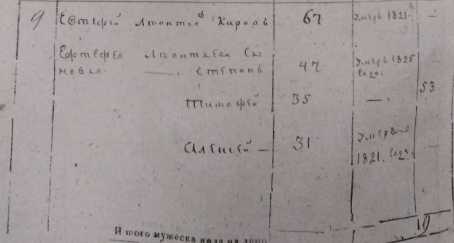 9 Леонтьев Кирова 67 умеръ 1821. —
Леонтьева Сы
новья — Степанъ 47 умеръ 1825
года.
Тимофей 35 — . 53
Алексей — 31 умеръ
1821. года
19
Итого мужеска пола на лицо